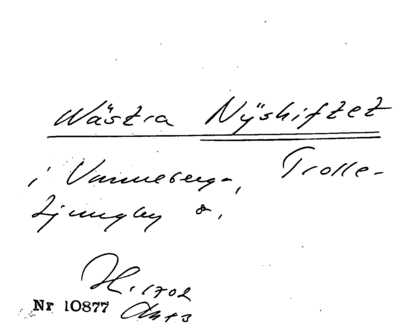 Wästra Nÿskiftet
i Vanneberga, Trolle-
Ljungby s.
H.
Nr 10877